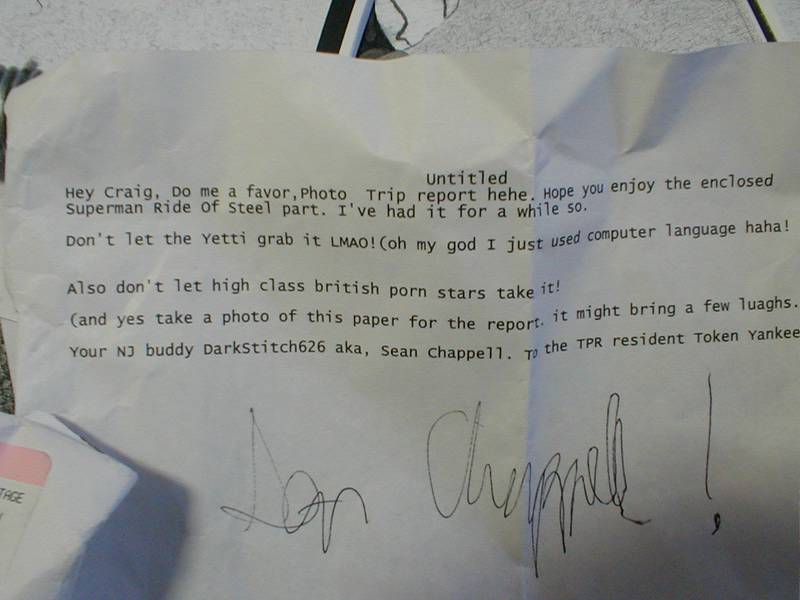 Untitled
Hey Craig, Do me a favor,Photo Trip report hehe. Hope you enjoy the enclosed
Superman Ride Of Steel part. I've had it for a while so.
Don't let the Yetti grab it LMAO!(oh my god I just used computer language haha!
Also don't let high class british porn stars take it!
(and yes take a photo of this paper for the report. it might bring a few luaghs.
Your NJ buddy DarkStitch626 aka, Sean Chappell. To the TPR resident Token Yankee
Sean Chappell !
TAGE